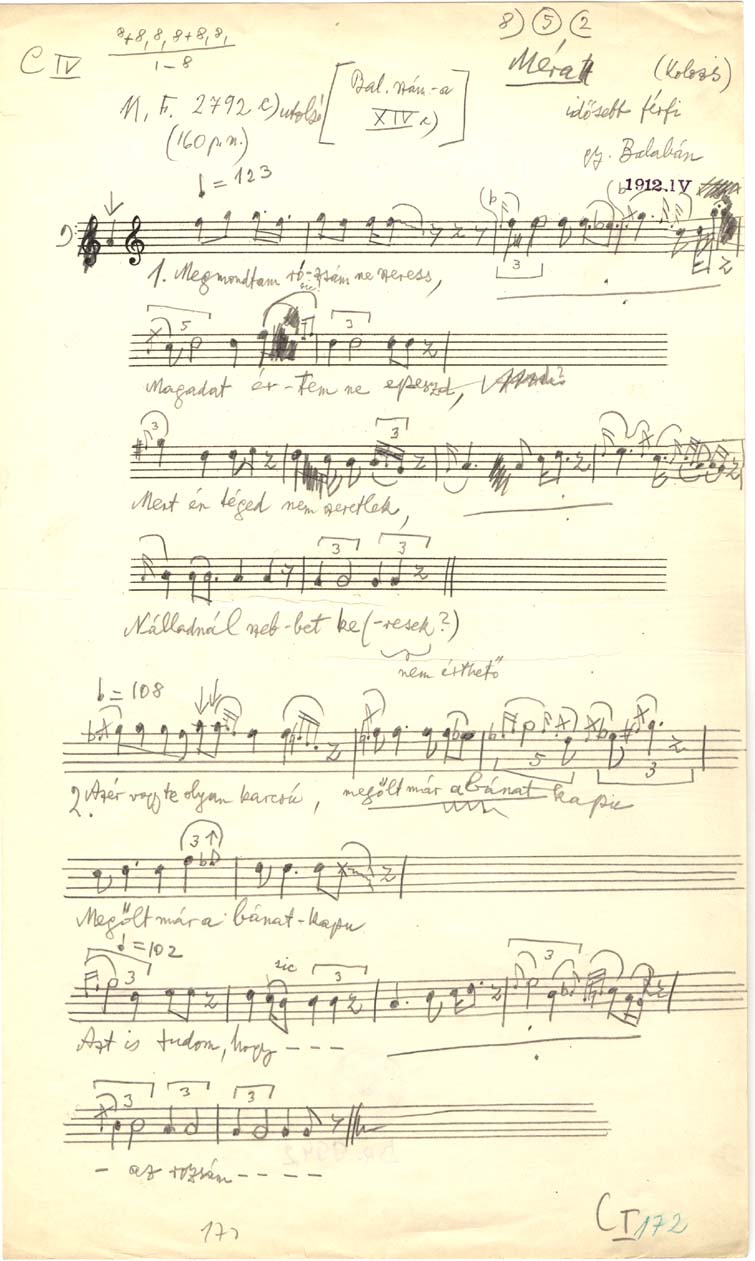 8) 5 2
C IV 8+8, 8, 8+8, 8,
1-8
Méra (Kolozs)
M. F. 2792 c) utolsó [Bal. szám-a XIV c)]
(160 p.n.)
idősebb férfi
gy. Balabán
1912.IV
= 123
1. Megmondtam ró-zsám ne szeress,
Magadat ér-tem ne epeszd,
Mert én téged nem szeretlek,
Nálladnál szeb-bet ke(-resek?)
nem érthető
= 108
2. Azér vagy te olyan karcsú, megölt már a bánat kapu
Megölt már a bánat-kapu
= 102
sic
Azt is tudom, hogy - - -
- az rozsám - - - -
C I 172